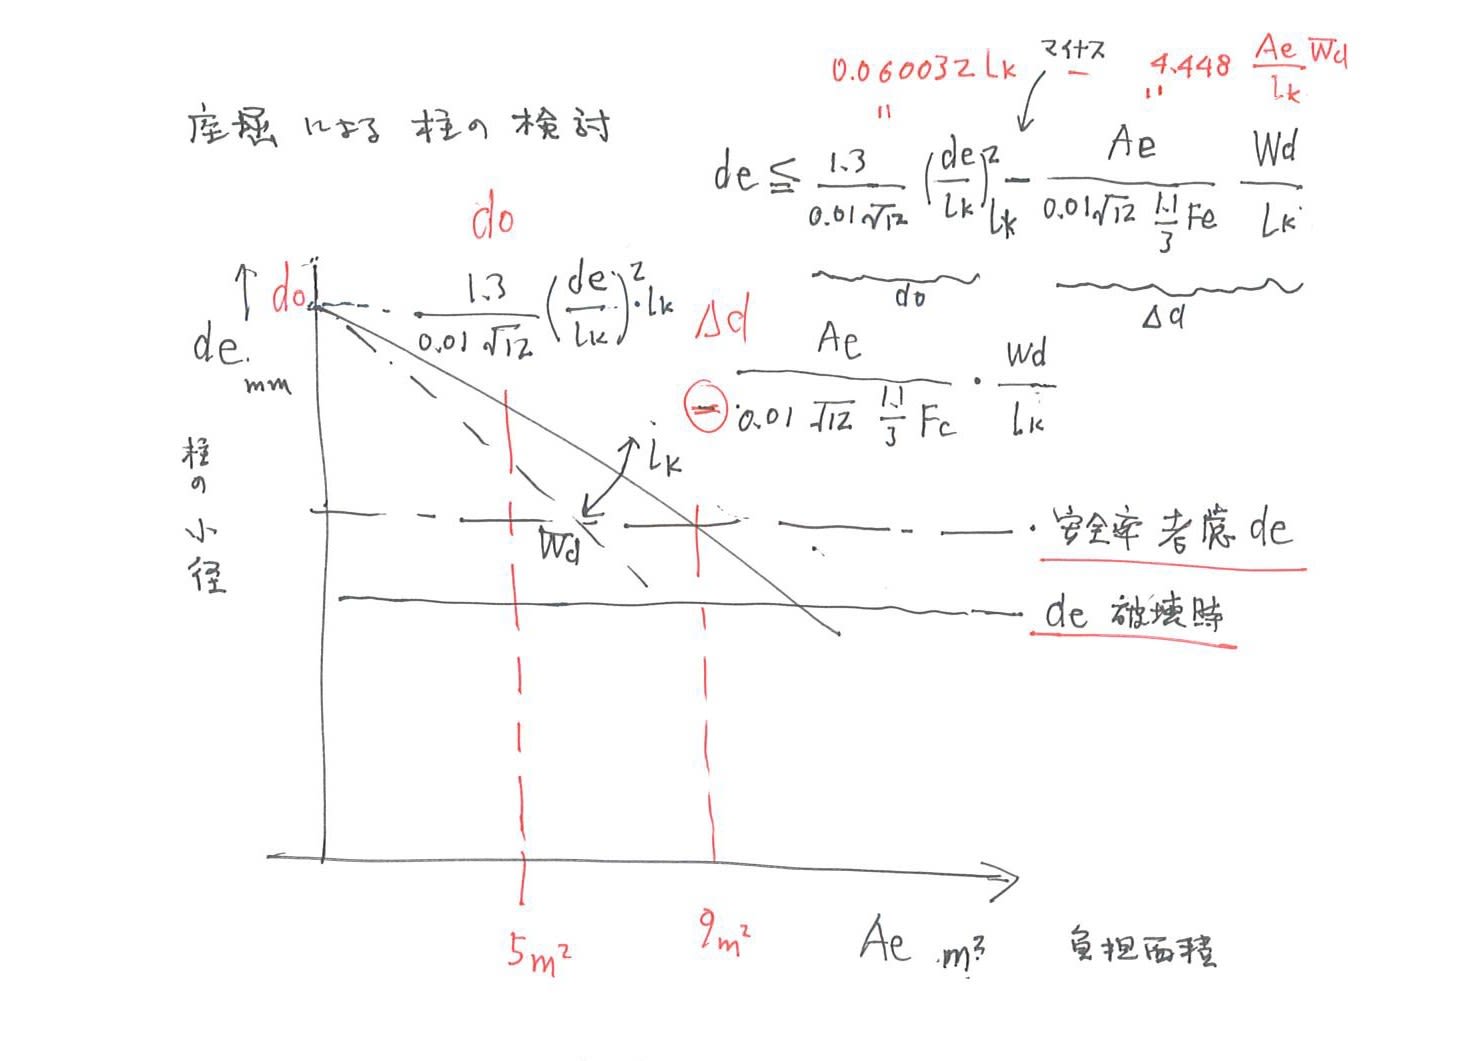 0.060032 Lk マイナス − 4.448 Ae Wd / Lk
座掘 による 柱の 検討
de ≦ 1.3 / 0.01√12 (de / Lk)² Lk − Ae / 0.01√12 1.1/3 Fe Wd / Lk
do Δd
do
↑ do 1.3 / 0.01 √12 (de / Lk)² · Lk
de. mm
Δd
− Ae / 0.01 √12 1.1/3 Fc · Wd / Lk
柱の小径
Lk
Wd
安全率 考慮 de
de 破壊時
5m² 9m² Ae m² 負担面積